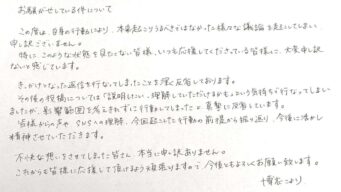 お騒がせしている件について
この度は、自身の行動により、本来起こりうるべきではなかった様々な議論を起こしてしまい
申し訳ございません。
特に、このような状態を見たくない皆様、いつも応援してくださっている皆様に、大変申し訳
ないと感じています。
きっかけとなった返信を行なってしまったことを深く反省しております。
その後の投稿については「説明したい、理解していただけるかも」という気持ちが行なってしまい
ましたが、影響範囲を考えきれずに行動してしまったこと真摯に反省しています。
皆様からの声や、SNSへの理解、今回起こした行動の前後から振り返り、今後に活かし
精神させていただきます。
不快な想いをさせてしまった皆さん、本当に申し訳ありません。
これからも皆様に応援して頂けるよう頑張りますので、今後ともよろしくお願い致します。
博衣こより